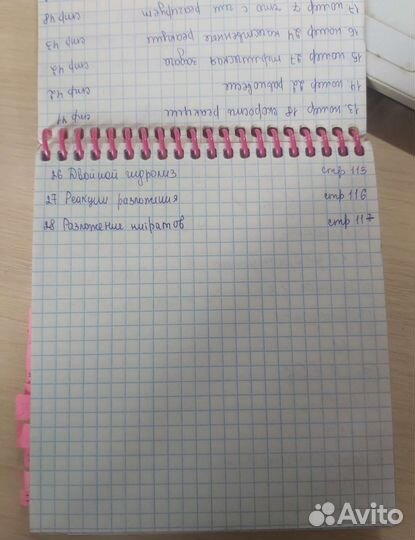 13. номер 18 скорость реакции стр 41
14 номер 22 равновесие стр 42
15 номер 27 термическая задача стр 42
16 номер 24 качественные реакции стр 43
17 номер 7 что с чем реагирует стр 48
26 Двойной гидролиз стр 113
27 Реакции разложения стр 116
28 Разложение нитратов стр 117
Avito